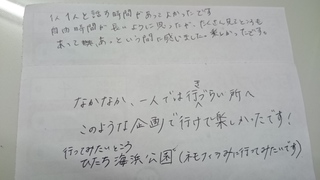 1人1人と話す時間があってよかったです
自由時間が長いように思ったが、たくさん見るところも
あって、あっという間に感じました。楽しかったです。
なかなか、一人では行きづらい所へ
このような企画で行けて楽しかったです!
行ってみたいところ
ひたち海浜公園(ネモフィラみに行ってみたいです)